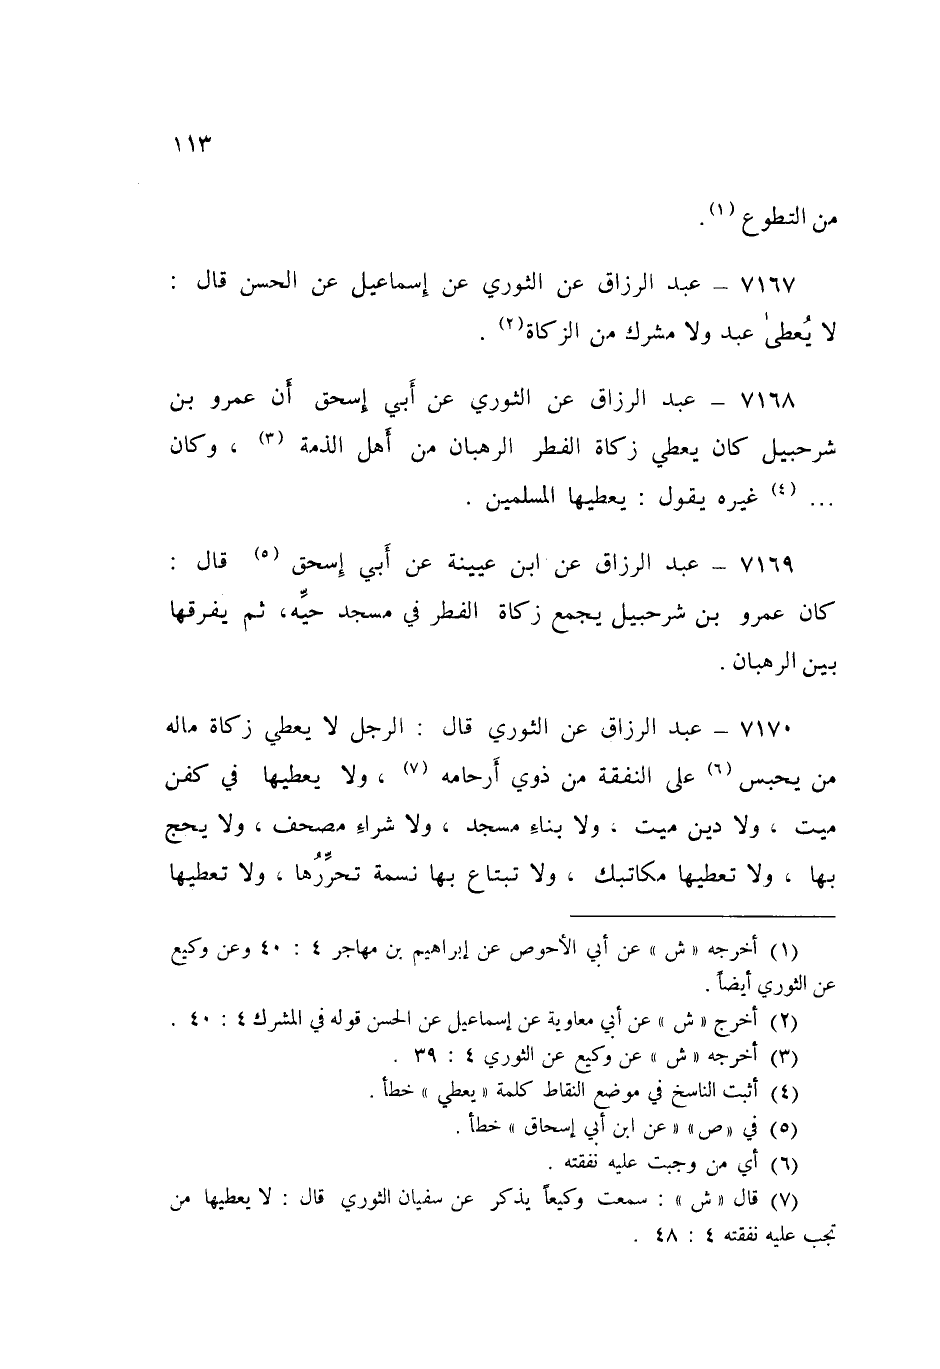 ١١٣
من التطوع (١).
٧١٦٧ – عبد الرزاق عن الثوري عن إسماعيل عن الحسن قال :
لا يُعطىٰ عبد ولا مشرك من الزكاة(٢) .
٧١٦٨ – عبد الرزاق عن الثوري عن أَبي إسحق أَن عمرو بن
شرحبيل كان يعطي زكاة الفطر الرهبان من أَهل الذمة (٣) ، وكان
... (٤) غيره يقول : يعطيها المسلمين .
٧١٦٩ – عبد الرزاق عن ابن عيينة عن أَبي إسحق (٥) قال :
كان عمرو بن شرحبيل يجمع زكاة الفطر في مسجد حيِّه، ثم يفرقها
بين الرهبان .
٧١٧٠ – عبد الرزاق عن الثوري قال : الرجل لا يعطي زكاة ماله
من يحبس (٦) على النفقة من ذوي أَرحامه (٧) ، ولا يعطيها في كفن
ميت ، ولا دين ميت ، ولا بناء مسجد ، ولا شراء مصحف ، ولا يحج
بها ، ولا تعطيها مكاتبك ، ولا تبتاع بها نسمة تحرِّرُها ، ولا تعطيها
(١) أخرجه « ش » عن أبي الأحوص عن إبراهيم بن مهاجر ٤ : ٤٠ وعن وكيع
عن الثوري أيضاً .
(٢) أخرج « ش » عن أبي معاوية عن إسماعيل عن الحسن قوله في المشرك ٤ : ٤٠ .
(٣) أخرجه « ش » عن وكيع عن الثوري ٤ : ٣٩ .
(٤) أثبت الناسخ في موضع النقاط كلمة « يعطي » خطأ .
(٥) في «ص» « عن ابن أبي إسحاق » خطأ .
(٦) أي من وجبت عليه نفقته .
(٧) قال « ش » : سمعت وكيعاً يذكر عن سفيان الثوري قال : لا يعطيها من
تجب عليه نفقته ٤ : ٤٨ .